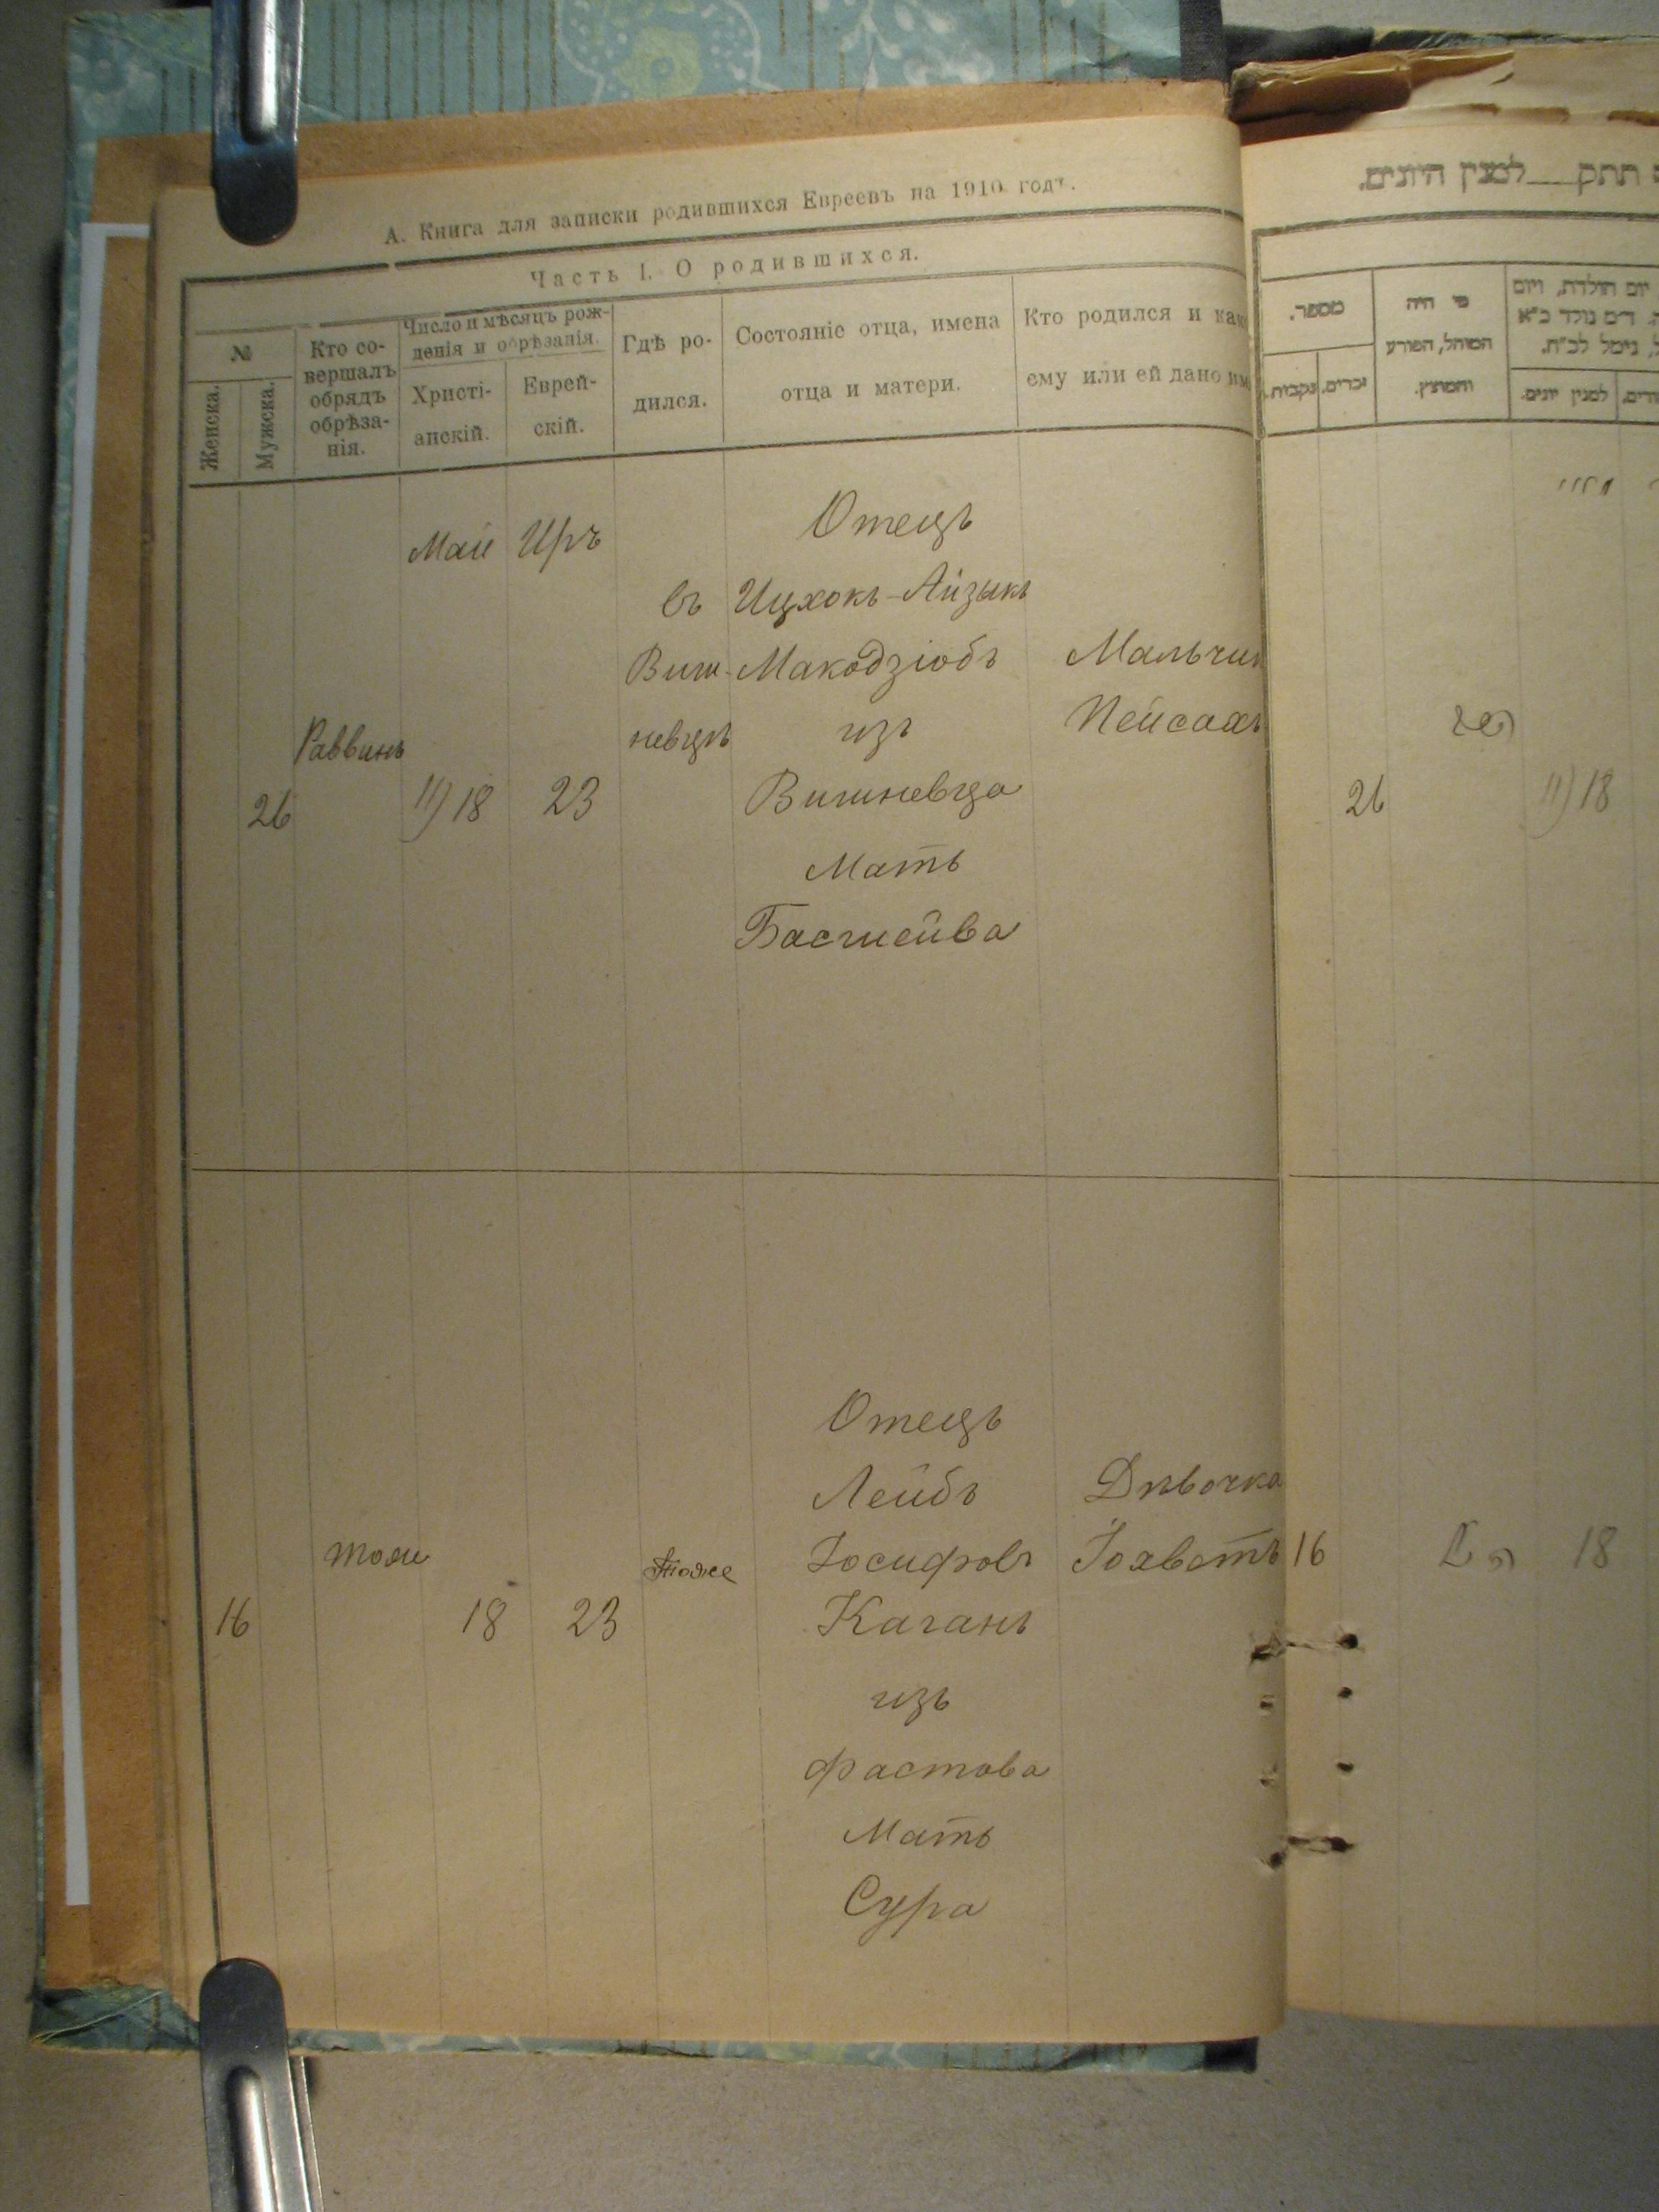 А. Книга для записки родившихся Евреевъ на 1910 годъ.
Часть I. О родившихся.
№
Женска.
Мужска.
Кто со-
вершалъ
обрядъ
обрѣза-
нія.
Число и мѣсяцъ рож-
денія и обрѣзанія.
Христі-
анскій.
Еврей-
скій.
Гдѣ ро-
дился.
Состояніе отца, имена
отца и матери.
Кто родился и как
ему или ей дано им
Май Иръ
26
Раввинъ
11) 18
23
въ
Виш-
невцѣ
Отецъ
Ицхокъ-Айзыкъ
Макодзіобъ
изъ
Вишневца
Мать
Басшейва
Мальчик
Пейсахъ
16
тоже
18
23
тоже
Отецъ
Лейбъ
Іосифовъ
Каганъ
изъ
Фастова
Мать
Сура
Дѣвочка
Іохветъ
תתק למנין היונים.
מספר.
נקבות.
זכרים.
מי היה
המוהל, הפורע
והמוצץ.
יום הולדת, ויום
למנין יונים.
26
11) 18
16
18